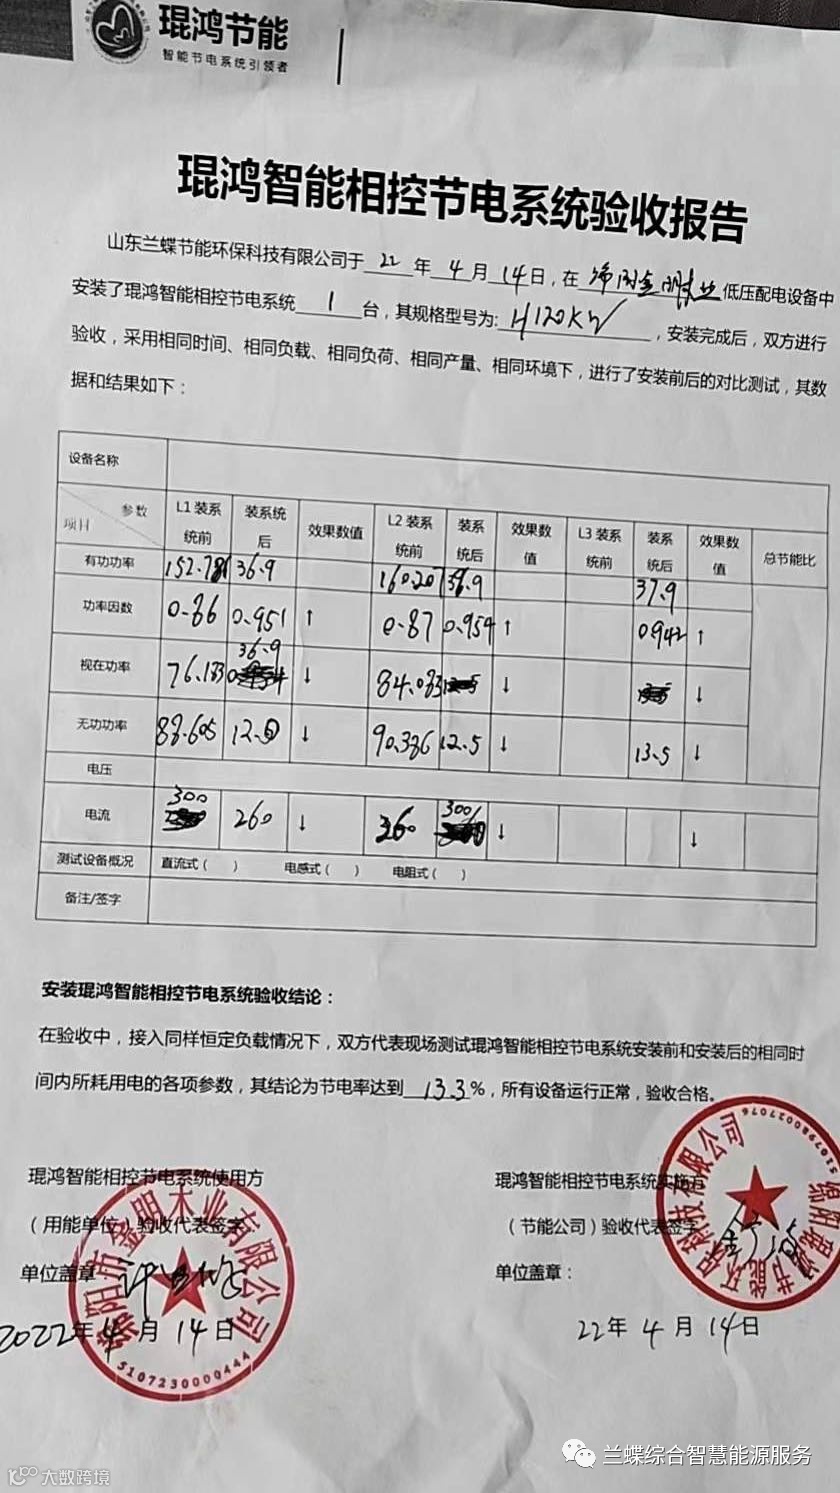 琨鸿节能
智能节电系统引领者
琨鸿智能相控节电系统验收报告
山东兰蝶节能环保科技有限公司于 22 年 4 月 14日，在 绵阳金明木业 低压配电设备中
安装了琨鸿智能相控节电系统 1 台，其规格型号为: H120KW ，安装完成后，双方进行
验收，采用相同时间、相同负载、相同负荷、相同产量、相同环境下，进行了安装前后的对比测试，其数
据和结果如下：
设备名称
参数 项目 L1装系统前 装系统后 效果数值 L2装系统前 装系统后 效果数值 L3装系统前 装系统后 效果数值 总节能比
有功功率 152.786 36.9 160.207 38.9 37.9
功率因数 0.86 0.951 ↑ 0.87 0.959 ↑ 0.942 ↑
视在功率 76.183 36.9 ↓ 84.083 ↓ ↓
无功功率 88.605 12.0 ↓ 90.386 12.5 ↓ 13.5 ↓
电压
电流 300 260 ↓ 360 300 ↓ ↓
测试设备概况 直流式（ ） 电感式（ ） 电阻式（ ）
备注/签字
安装琨鸿智能相控节电系统验收结论：
在验收中，接入同样恒定负载情况下，双方代表现场测试琨鸿智能相控节电系统安装前和安装后的相同时
间内所耗用电的各项参数，其结论为节电率达到 13.3 %，所有设备运行正常，验收合格。
琨鸿智能相控节电系统使用方 琨鸿智能相控节电系统实施方
（用能单位）验收代表签字 （节能公司）验收代表签字
单位盖章 单位盖章：
2022年 4 月 14日 22年 4 月 14日
绵阳市金明木业有限公司
5107230000444
绵阳琨鸿节能环保科技有限公司
5107980027076
兰蝶综合智慧能源服务
大数跨境